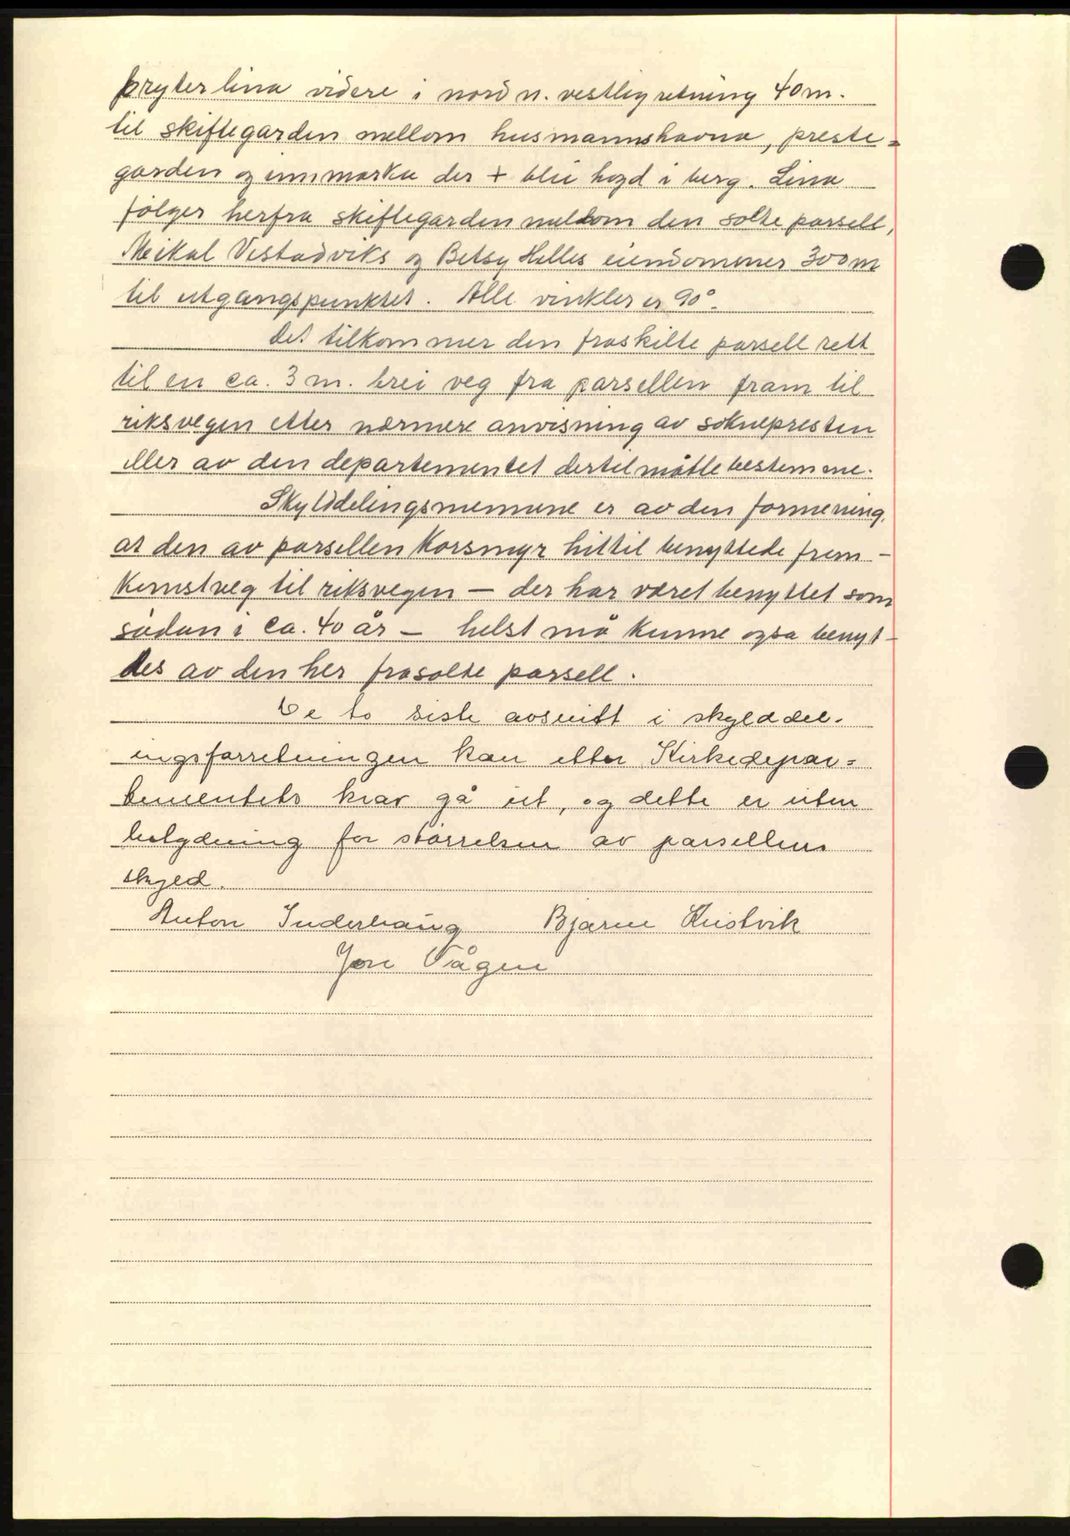 bryter lina videre i nord n. vestlig retning 40 m.
til skiftegarden mellom husmannshavna, preste=
garden og innmarka der + blei hogd i berg. Lina
følger herfra skiftegarden mellom den solte parsell,
Meikal Vestadviks og Betsy Helles eiendommer 300 m
til utgangspunktet. Alle vinkler er 90°.
Det tilkommer den fraskilte parsell rett
til en ca. 3 m. brei veg fra parsellen fram til
riksvegen etter nærmere anvisning av soknepresten
eller av den departementet dertil måtte bestemme.
Skylddelingsmennene er av den formening,
at den av parsellen Korsmyr hittil benyttede frem-
komstveg til riksvegen – der har været benyttet som
sådan i ca. 40 år – helst må kunne også benyt-
tes av den her frasolte parsell.
De to siste avsnitt i skylddel-
ingsforretningen kan etter Kirkedepar=
tementets krav gå ut, og dette er uten
betydning for størrelsen av parsellens
skyld.
Anton Inderhaug Bjarne
Jon Vågen